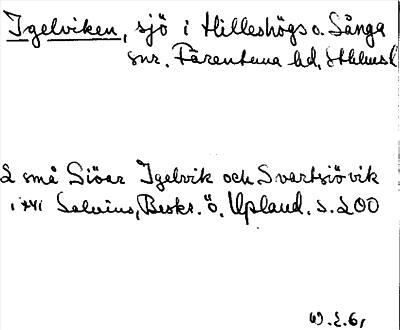 Igelviken, sjö i Hilleshögs o. Sånga
snr. Färentuna hd, Sthlmsl
2 små Siöar Igelvik och Svartsiövik
i 1741 Salvius, Beskr. ö. Upland. s. 200
W.E. 61